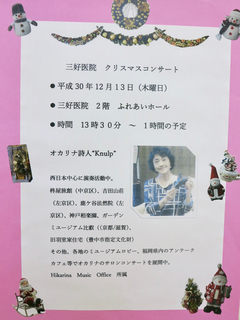 三好医院 クリスマスコンサート
●平成30年12月13日（木曜日）
●三好医院 2階 ふれあいホール
●時間 13時30分 ～ 1時間の予定
オカリナ詩人“Knulp”
西日本中心に演奏活動中。
柊屋旅館（中京区）、吉田山荘
（左京区）、鹿ケ谷法然院（左
京区）、神戸相楽園、ガーデン
ミュージアム比叡（（京都/滋賀）、
旧羽室家住宅（豊中市指定文化財）
その他、各地のミュージアムロビー、福岡県内のアンテーク
カフェ等でオカリナのサロンコンサートを展開中。
Hikarina Music Office 所属